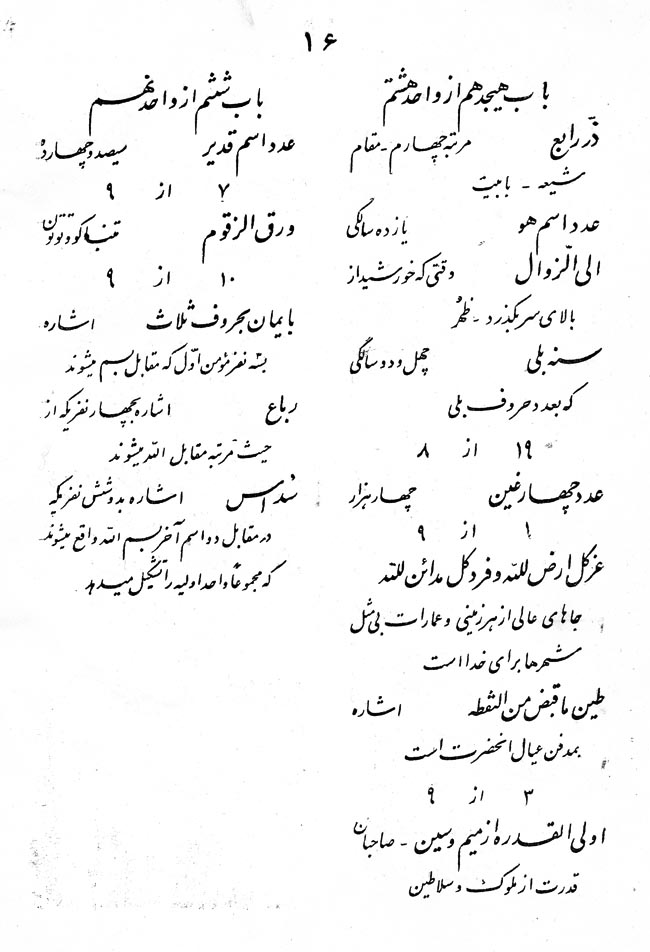 ۱۶
باب هیجدهم از واحد هشتم
ذرّ رابع مرتبه چهارم - مقام
شیعه - بابیت
عدد اسم هو یازده سالگی
الی الزّوال وقتی که خورشید از
بالای سر بگذرد - ظهر
سنه بلی چهل و دو سالگی
که بعدد حروف بلی
۱۹ از ۸
عدد چهار غین چهار هزار
۱ از ۹
عز کل ارض للّه و فرد کل مدائن للّه
جاهای عالی از هر زمینی و عمارات بی مثل
شهرها برای خدا است
طین ما قبض من النقطه اشاره
بمدفن عیال انحضرت است
۳ از ۹
اولی القدره از میم و سین - صاحبان
قدرت از ملوک و سلاطین
باب ششم از واحد نهم
عدد اسم قدیر سیصد و چهارده
۷ از ۹
ورق الزقوم تنباکو و توتون
۱۰ از ۹
بایمان بحروف ثلاث اشاره
بسّه نفر مؤمن اوّل که مقابل بسم میشوند
رباع اشاره بچهار نفریکه از
حیث مرتبه مقابل اللّه میشوند
سداس اشاره بدوشش نفریکه
در مقابل دو اسم آخر بسم اللّه واقع میشوند
که مجموعاً واحد اولیه را تشکیل میدهد